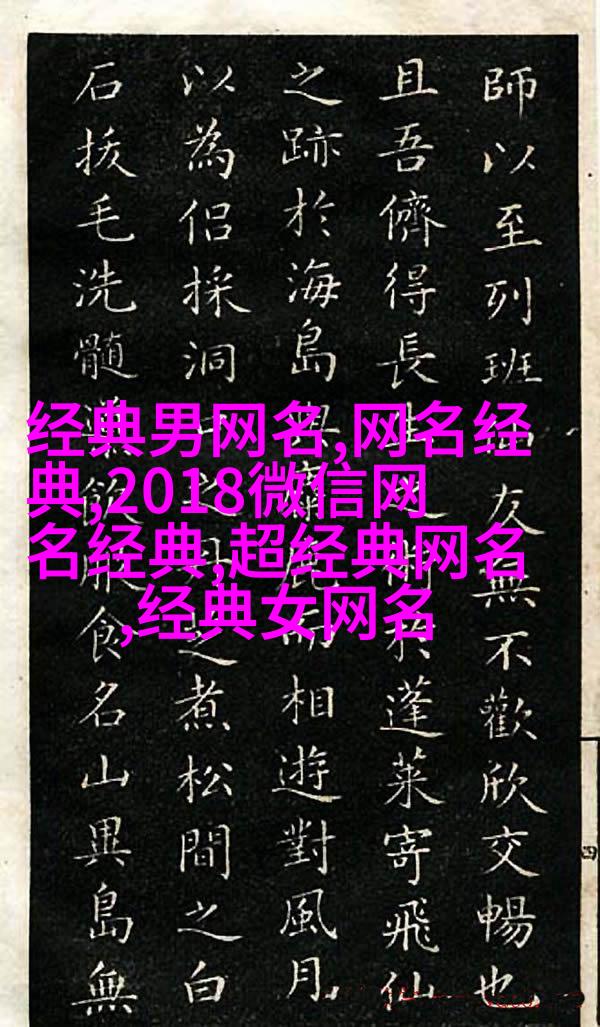 经典男网名,网名经
典,2018微信网
名经典,超经典网名
,经典女网名
師以至列班友無不歡欣交暢也
且吾儕得長生之術於蓬萊寄飛仙
之跡於海島與鹿而相遊對風月
以為侶採洞之之煮松間之白
石拔毛洗髓飲服食名山異島無